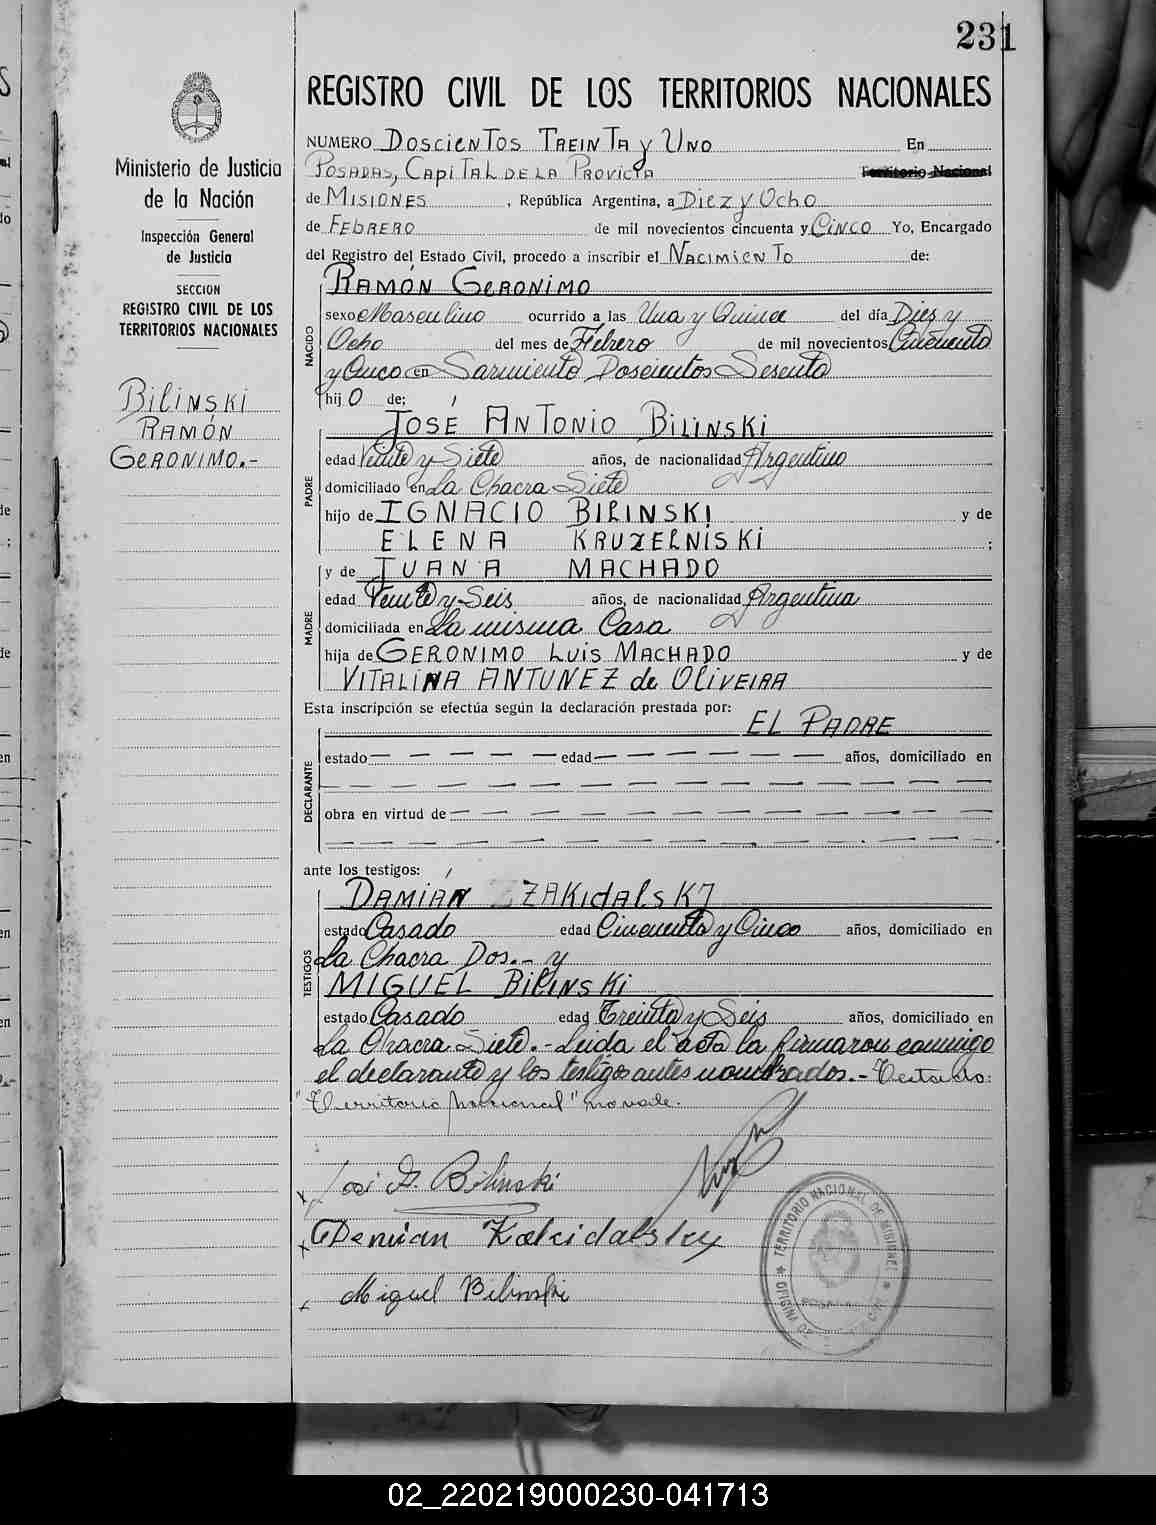 231
Ministerio de Justicia
de la Nación
Inspección General
de Justicia
SECCION
REGISTRO CIVIL DE LOS
TERRITORIOS NACIONALES
BILINSKI
RAMÓN
GERONIMO.-
REGISTRO CIVIL DE LOS TERRITORIOS NACIONALES
NUMERO DOSCIENTOS TREINTA y UNO En
POSADAS, CAPITAL DE LA PROVICIA Territorio Nacional
de MISIONES, República Argentina, a DIEZ y OCHO
de FEBRERO de mil novecientos cincuenta y CINCO Yo, Encargado
del Registro del Estado Civil, procedo a inscribir el NACIMIENTO de:
NACIDO
RAMÓN GERONIMO
sexo Masculino ocurrido a las Una y Quince del día Dies y
Ocho del mes de Febrero de mil novecientos Cincuenta
y Cinco en Sarmiento Doscientos Sesenta
hij O de:
PADRE
JOSÉ ANTONIO BILINSKI
edad Veinte y Siete años, de nacionalidad Argentino
domiciliado en La Chacra Siete
hijo de IGNACIO BILINSKI y de
ELENA KRUZELNISKI ;
MADRE
y de JUANA MACHADO
edad Veinte y Seis años, de nacionalidad Argentina
domiciliada en La misma Casa
hija de GERONIMO LUIS MACHADO y de
VITALINA ANTUNEZ de OLIVEIRA
Esta inscripción se efectúa según la declaración prestada por:
DECLARANTE
EL PADRE
estado — — — — — edad — — — — — — años, domiciliado en
— — — — — — — — — — — — — — —
obra en virtud de — — — — — — — — — — —
— — — — — — — — — — — — — — —.
ante los testigos:
TESTIGOS
DAMIÁN ZZAKIDALSKJ
estado Casado edad Cincuenta y Cinco años, domiciliado en
La Chacra Dos.- y
MIGUEL BILINSKI
estado Casado edad Treinta y Seis años, domiciliado en
La Chacra Siete.- Leida el acta la firmaron conmigo
el declarante y los testigos antes nombrados.- Testado:
"Territorio Nacional" no vale.
José A. Bilinski
Demian Zakidalsky
Miguel Bilinski
TERRITORIO NACIONAL DE MISIONES
OFICINA
POSADAS
02_220219000230-041713